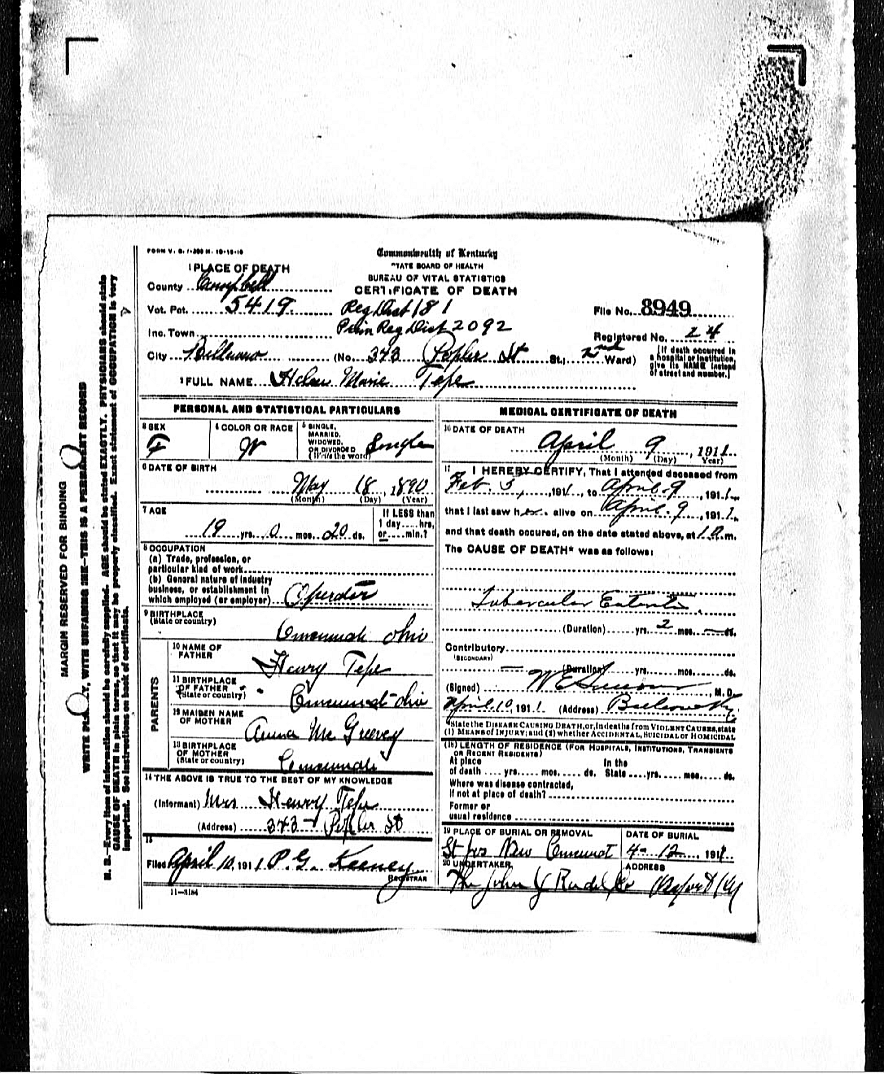 FORM V. S. 1-200 M. 10-19-10
Commonwealth of Kentucky
STATE BOARD OF HEALTH
BUREAU OF VITAL STATISTICS
CERTIFICATE OF DEATH
1 PLACE OF DEATH
County Campbell
Vot. Pct. 5419 Reg Dist 181
File No. 8949
Inc. Town Prim Reg Dist 2092
Registered No. 24
City (No. 343 Popler St St.; 2nd Ward)
[If death occurred in a hospital or institution, give its NAME instead of street and number.]
2 FULL NAME Helen Marie Tepe
PERSONAL AND STATISTICAL PARTICULARS
3 SEX F
4 COLOR OR RACE W
5 SINGLE, MARRIED, WIDOWED, OR DIVORCED (Write the word) Single
6 DATE OF BIRTH
May 18, 1890
(Month) (Day) (Year)
7 AGE
19 yrs. 0 mos. 20 ds.
If LESS than 1 day....hrs. or....min.?
8 OCCUPATION
(a) Trade, profession, or particular kind of work
(b) General nature of industry business, or establishment in which employed (or employer) Operator
9 BIRTHPLACE
(State or country)
Cincinnati Ohio
PARENTS
10 NAME OF FATHER
Henry Tepe
11 BIRTHPLACE OF FATHER
(State or country)
Cincinnati Ohio
12 MAIDEN NAME OF MOTHER
Anna Mc Greevy
13 BIRTHPLACE OF MOTHER
(State or country)
Cincinnati
14 THE ABOVE IS TRUE TO THE BEST OF MY KNOWLEDGE
(Informant) Mrs Henry Tepe
(Address) 343 Popler St
15
Filed April 10, 1911 P. G. Keeney
REGISTRAR
11-3184
MEDICAL CERTIFICATE OF DEATH
16 DATE OF DEATH
April 9 1911
(Month) (Day) (Year)
17 I HEREBY CERTIFY, That I attended deceased from
Feb. 5, 1911, to April 9, 1911,
that I last saw her alive on April 9, 1911,
and that death occured, on the date stated above, at 1 a.m.
The CAUSE OF DEATH* was as follows:
Tubercular
(Duration) yrs. 2 mos. ds.
Contributory
(SECONDARY)
(Duration) yrs. mos. ds.
(Signed) M. D.
April 10, 1911 (Address)
*State the DISEASE CAUSING DEATH, or, in deaths from VIOLENT CAUSES, state (1) MEANS of INJURY; and (2) whether ACCIDENTAL, SUICIDAL or HOMICIDAL
18 LENGTH OF RESIDENCE (FOR HOSPITALS, INSTITUTIONS, TRANSIENTS OR RECENT RESIDENTS)
At place of death yrs. mos. ds. In the State yrs. mos. ds.
Where was disease contracted, If not at place of death?
Former or usual residence
19 PLACE OF BURIAL OR REMOVAL
St Jos New Cincinnati
DATE OF BURIAL
4-12 1911
20 UNDERTAKER
The John
ADDRESS
Newport Ky
MARGIN RESERVED FOR BINDING
WRITE PLAINLY, WITH UNFADING INK—THIS IS A PERMANENT RECORD
N. B.—Every item of information should be carefully supplied. AGE should be stated EXACTLY. PHYSICIANS should state
CAUSE OF DEATH in plain terms, so that it may be properly classified. Exact statement of OCCUPATION is very
important. See instructions on back of certificate.